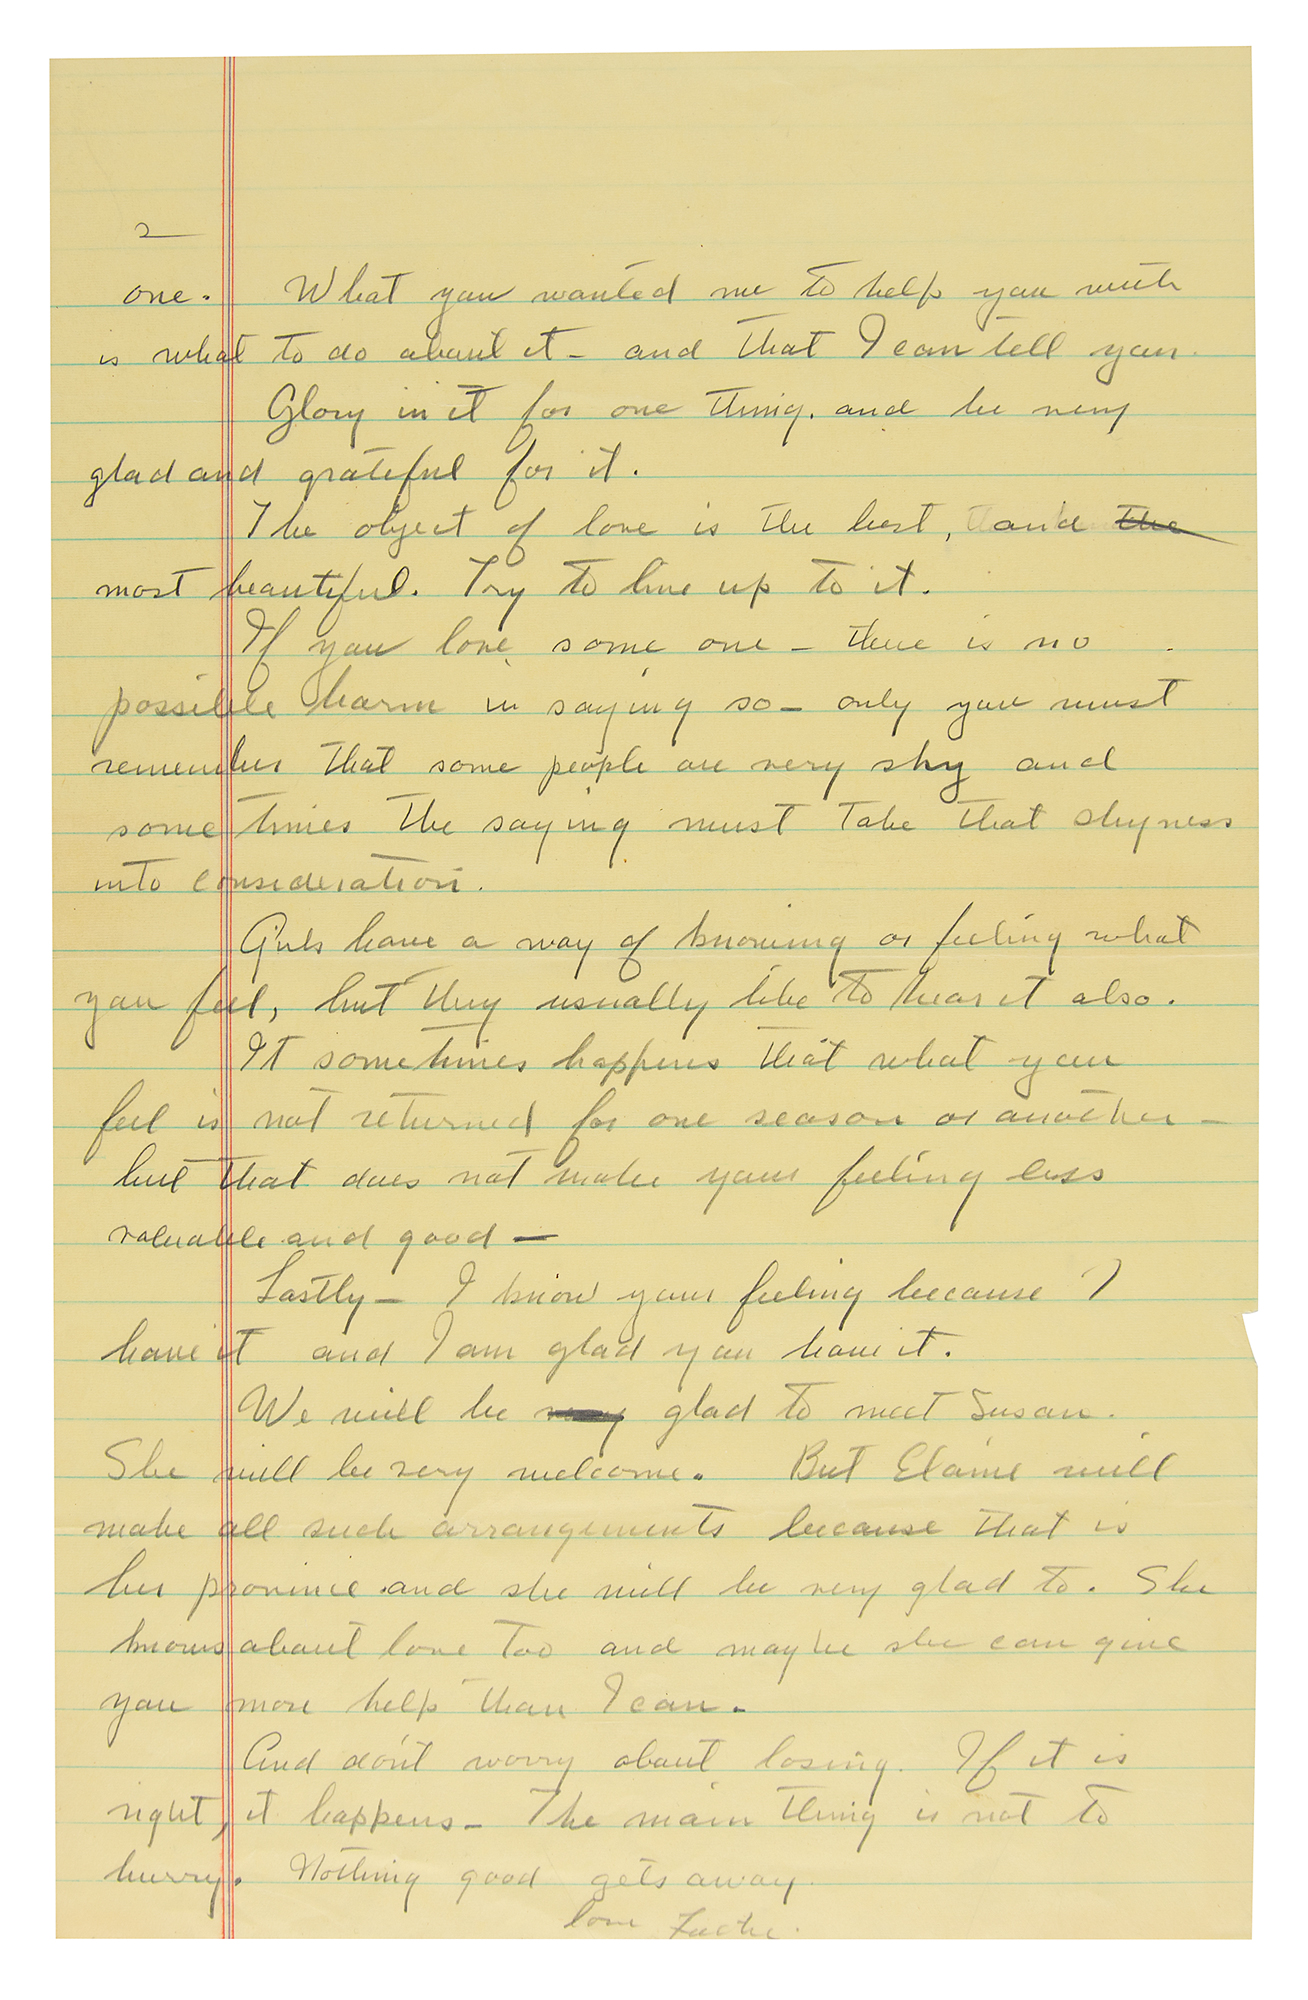 2
one. What you wanted me to help you with
is what to do about it – and that I can tell you.
Glory in it for one thing. and be very
glad and grateful for it.
The object of love is the best, and the
most beautiful. Try to live up to it.
If you love some one – there is no
possible harm in saying so – only you must
remember that some people are very shy and
some times the saying must take that shyness
into consideration.
Girls have a way of knowing or feeling what
you feel, but they usually like to hear it also.
It sometimes happens that what you
feel is not returned for one season or another –
but that does not make your feeling less
valuable and good –
Lastly – I know your feeling because I
have it and I am glad you have it.
We will be very glad to meet Susan.
She will be very welcome. But Elaine will
make all such arrangements because that is
her province and she will be very glad to. She
knows about love too and maybe she can give
you more help than I can.
And don't worry about losing. If it is
right, it happens – The main thing is not to
hurry. Nothing good gets away.
love